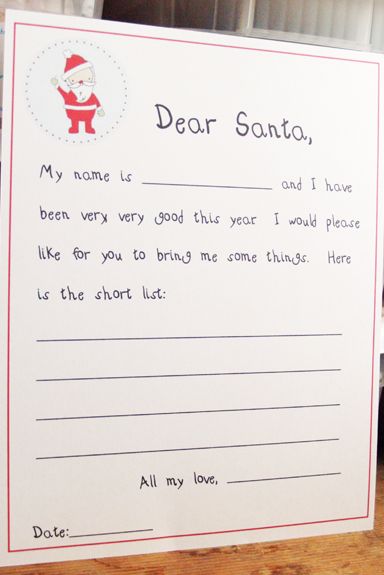 Dear Santa,
My name is ____________ and I have
been very, very good this year I would please
like for you to bring me some things. Here
is the short list:
All my love, ____________
Date:____________